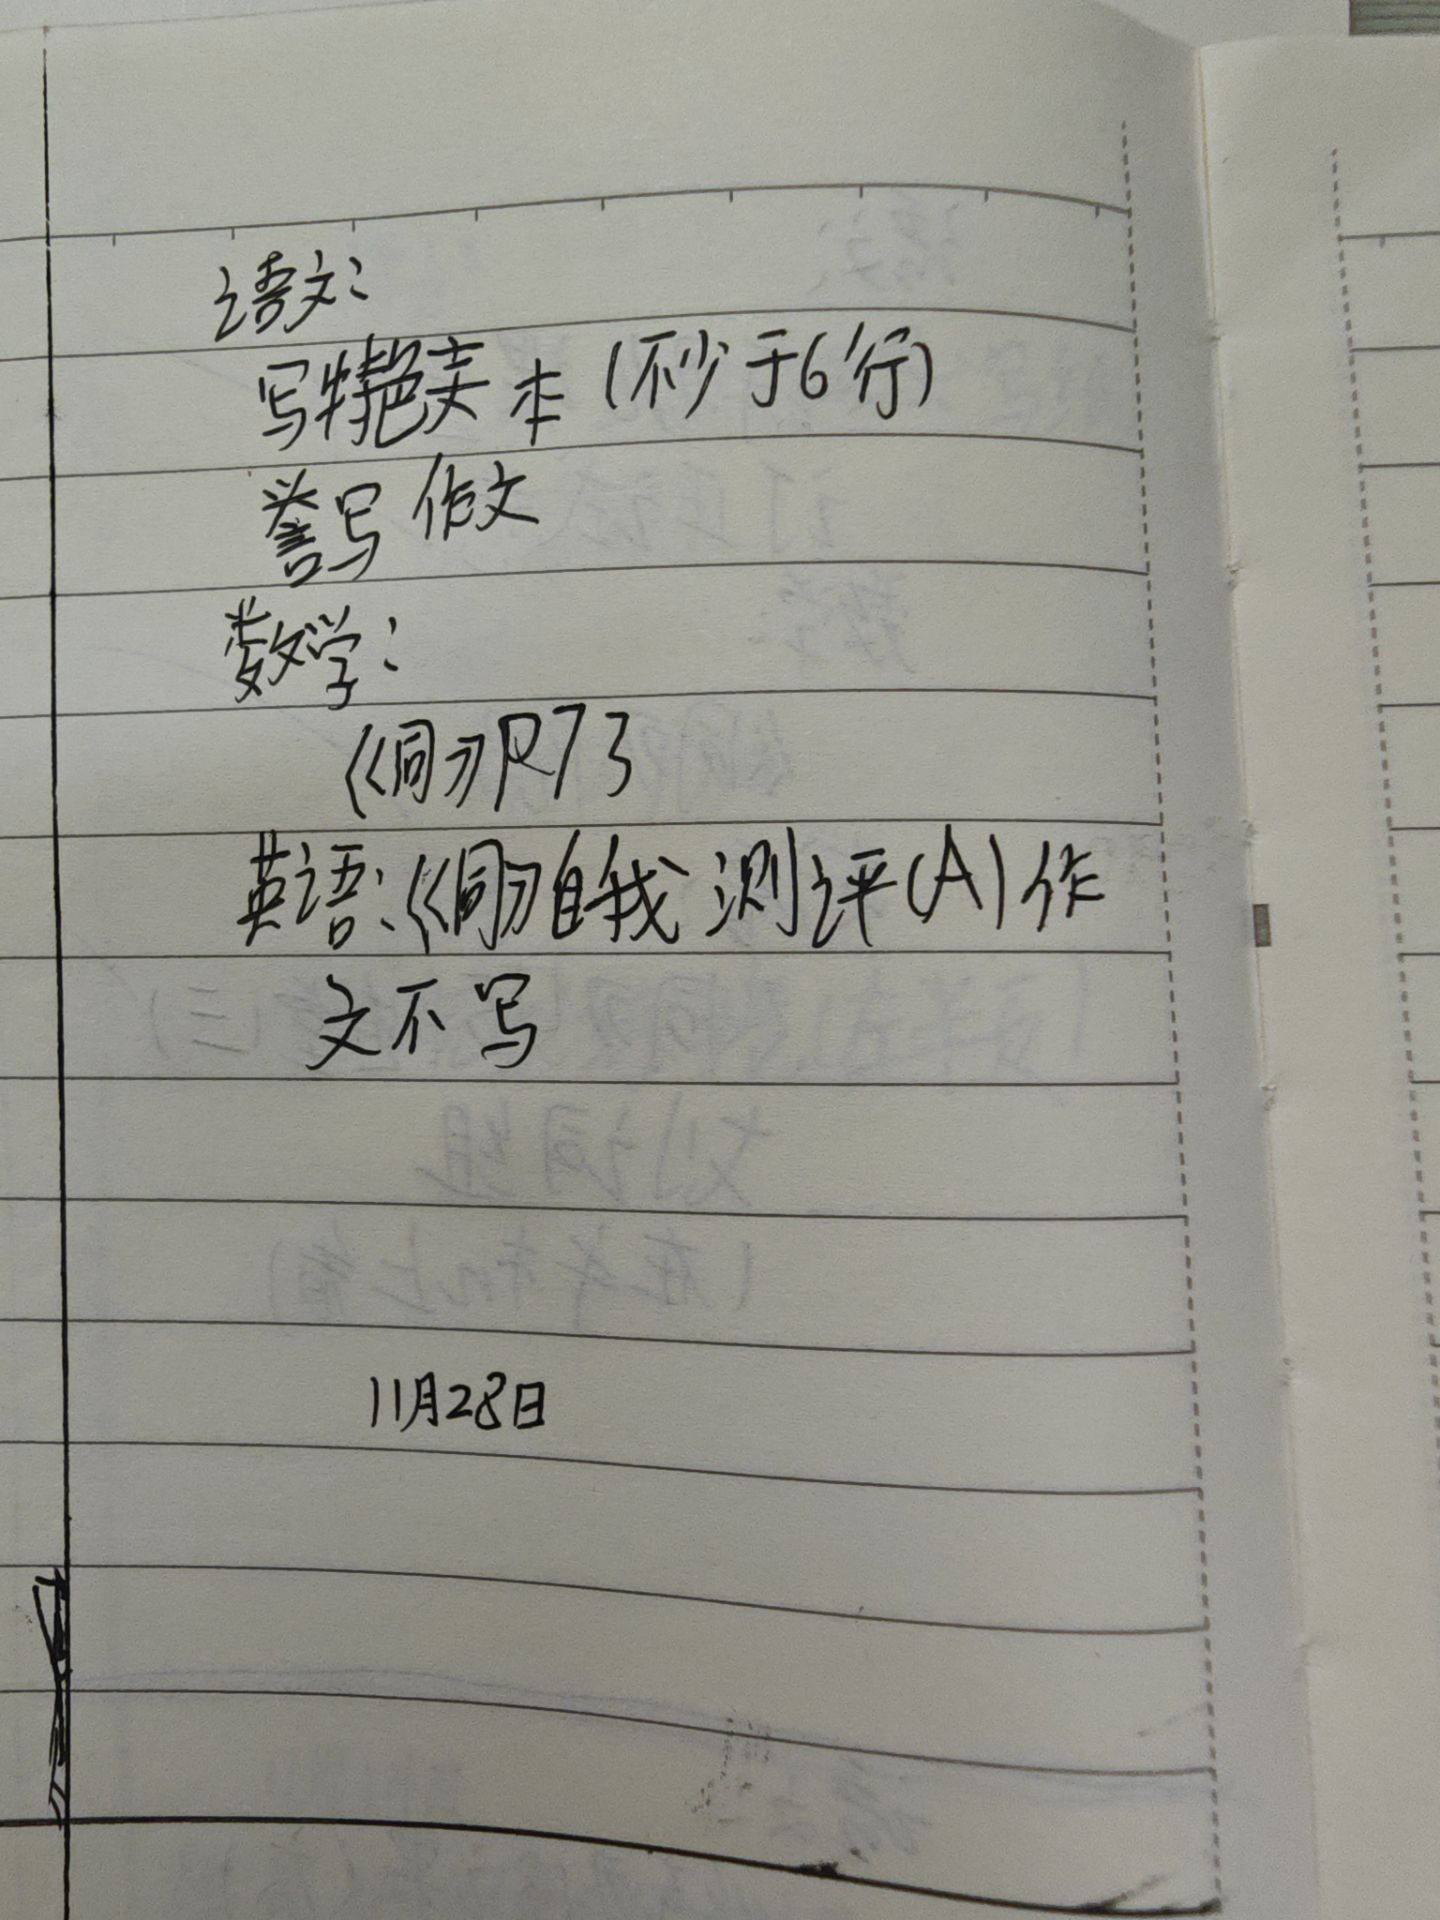 语文：
写特色文本（不少于6行）
誊写作文
数学：
《同》P73
英语：《同》自我测评（A）作
文不写
11月28日